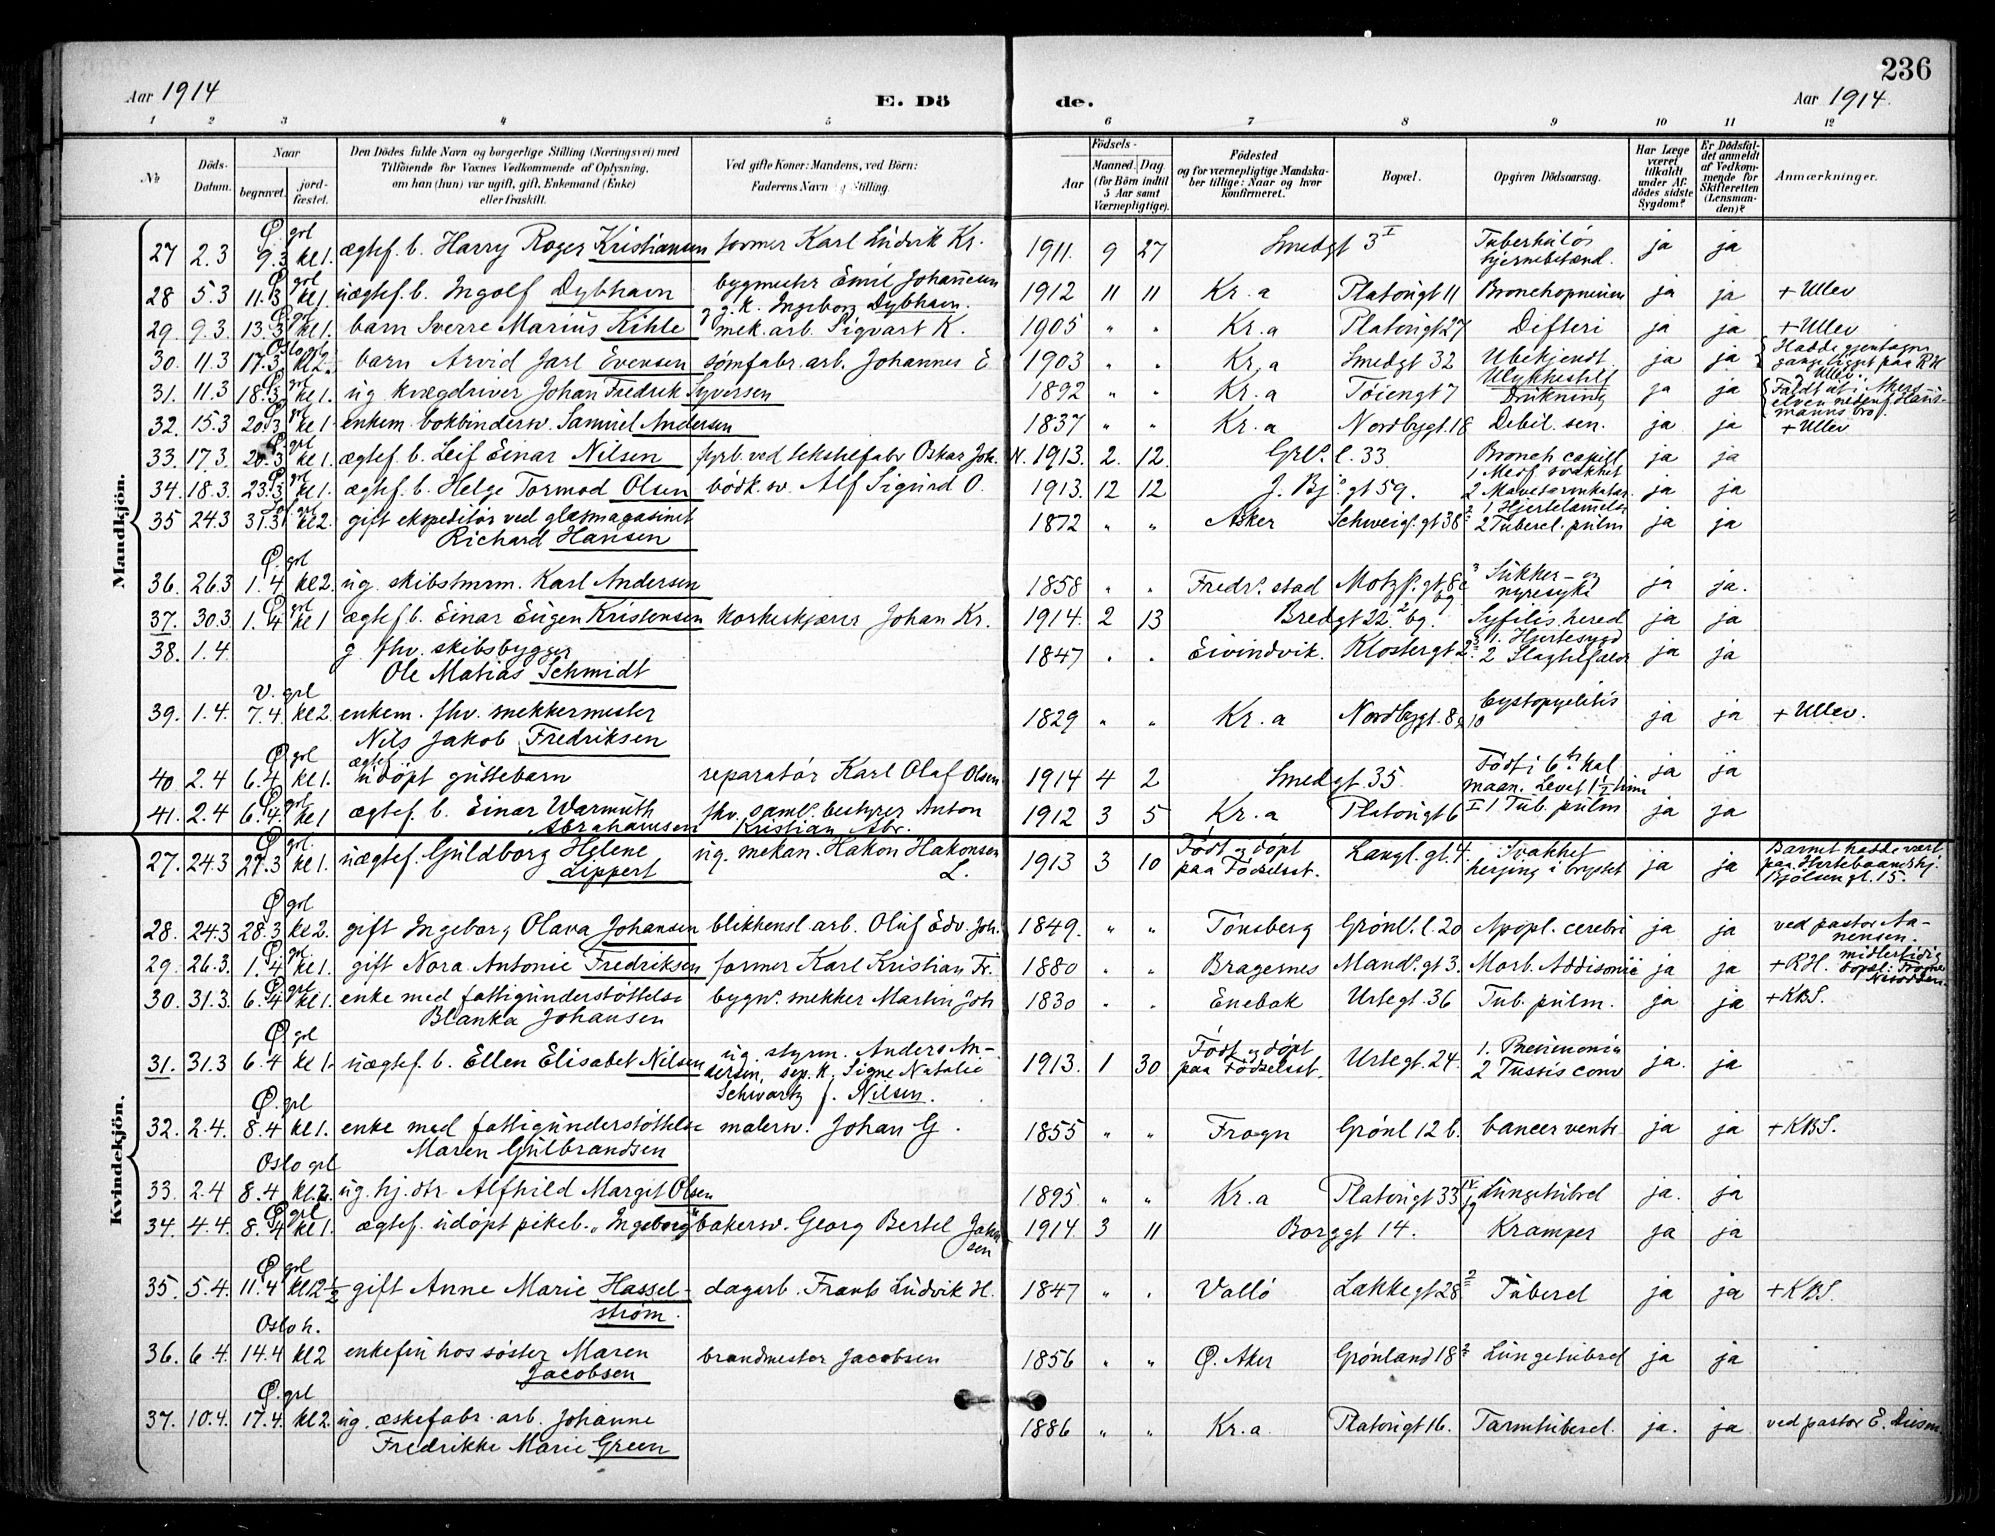 236
Aar 1914
E. Döde.
Aar 1914.
1 2 3 4 5 6 7 8 9 10 11 12
№
Döds-Datum.
Naar
begravet.
jord-fæstet.
Den Dödes fulde Navn og borgerlige Stilling (Næringsvei) med
Tilföiende for Voxnes Vedkommende af Oplysning,
om han (hun) var ugift, gift, Enkemand (Enke)
eller fraskilt.
Ved gifte Koner: Mandens, ved Börn:
Faderens Navn og Stilling.
Födsels-
Aar
Maaned. Dag
(for Börn indtil
5 Aar samt
Værnepligtige).
Födested
og for værnepligtige Mandska-
ber tillige: Naar og hvor
konfirmeret.
Bopæl.
Opgiven Dödsaarsag.
Har Læge
været
tilkaldt
under Af-
dödes sidste
Sygdom?
Er Dödsfal-
det anmeldt
af Vedkom-
mende for
Skifteretten
(Lensman-
den)?
Anmærkninger.
Mandkjön.
27 2.3 Ø. grl 9.3 kl 1. ægtef. b. Harry Roger Kristiansen former Karl Ludvik Kr. 1911. 9 27 Smedgt 3 I Tuberkuløs hjernebetænd. ja ja
28 5.3 Ø. grl 11.3 kl 1 uægtef. b. Ingolf Dybhavn bygmester Emil Johansen g. k. Ingeborg Dybhavn. 1912 11 11 Kr. a Platougt 11 Bronchopneum ja ja + Ullev
29. 9.3 Ø. grl 13.3 kl 1. barn Sverre Marius Kihle mek. arb. Sigvart K. 1905 " " Kr. a Platougt 27 Difteri ja ja + Ullev
30. 11.3 Oslo grl 17.3 kl 2. barn Arvid Jarl Evensen sømfabr. arb. Johannes E 1903 " " Kr. a Smedgt 32 Ubekjendt ja ja Hadde gjentagne gange ligget paa RH Ullev.
31. 11.3 Ø. grl 18.3 kl 1. ug kvægdriver Johan Fredrik Syversen 1892 " " Kr. a Tøiengt 7 Ulykkestilf Drukning ja ja Faldt ut i Akers-elven nedenf Haus-manns bro.
32. 15.3 20.3 kl 1. enkem. bokbindersv. Samuel Andersen 1837 " " Kr. a Nordbygt. 18 Debil. sen. ja ja + Ullev
33. 17.3. Ø. grl 20.3 kl 1. ægtef. b. Leif Einar Nilsen fyrb. ved tekstilfabr Oskar Joh. N. 1913. 2. 12. Grl. l. 33. Bronch capill ja ja
34. 18.3. Ø. grl 23.3 kl 1. ægtef. b. Helge Tormod Olsen bødk. sv. Alf Sigurd O. 1913. 12 12 J. Bj. gt 59. 1 Medf svakhet 2 Mavetarmkatar. ja ja
35 24.3 31.3 kl 2. gift ekspeditør ved glasmagasinet
Richard Hansen 1872 " " Asker Schweig. gt 38 2 1 Hjertelamelse 2 Tubercl. pulm ja ja
36. 26.3 Ø. grl 1.4 kl 2. ug. skibstmrm. Karl Andersen 1858 " " Fredr. stad Motzf. gt 8c 3 bg Sukker- og nyresyke ja ja.
37. 30.3 Ø. grl 1.4 kl 1 ægtef. b. Einar Eugen Kristensen korkeskjærer Johan Kr. 1914. 2 13 Bredgt 22 2 bg. Syfilis hered ja ja
38. 1.4. g. fhv. skibsbygger
Ole Matias Schmidt 1847 " " Eivindvik. Klostergt 2 3 1. Hjertesygd 2 Slagtilfælde ja ja
39. 1.4. V. grl 7.4. kl 2 enkem. fhv. snekkermester
Nils Jakob Fredriksen 1829 " " Kr. a Nordbygt. 8 Cystopyelitis ja ja + Ullev.
40 2.4 Ø. grl 6.4. kl 1. ægtef. udøpt guttebarn reparatør Karl Olaf Olsen 1914 4 2 Smedgt 35. Født i 6te kal. maan. Levet 1½ time ja ja
41. 2.4 Ø. grl 6.4. kl 1 ægtef. b. Einar Warmuth
Abrahamsen fhv. saml. bestyrer Anton
Kristian Abr. 1912 3 5 Kr. a Platougt 6 II Tub. pulm ja ja
Kvindekjön.
27. 24.3 Ø. grl. 27.3 kl 1. uægtef. Guldborg Helene
Lippert ug. mekan. Hakon Hakonsen
L. 1913 3 10 Født og døpt
paa Fødselsst. Langl. gt. 4. Svakhet ja ja Barnet hadde vært
Bjølsengt. 15.
28. 24.3 Ø. grl 28.3 kl 2. gift Ingeborg Olava Johansen blikkensl. arb. Oluf Edv. Joh. 1849. " " Tønsberg Grønl. l. 20 Apopl. cerebri ja ja ved pastor Aa-
nensen.
29. 26.3. Ø. grl 1.4 kl 1. gift Nora Antonie Fredriksen former Karl Kristian Fr. 1880 " " Bragernes Mands. gt 3. Morb. Addisonii ja ja + RH. midlertidig bopæl: Nesodden.
30. 31.3. Ø. grl 6.4 kl 1. enke med fattigunderstøttelse
Blanka Johansen bygn. snekker Martin Joh 1830 " " Enebak Urtegt. 36 Tub. pulm. ja ja + KBS.
31. 31.3 Ø. grl 6.4 kl 1. uægtef. b. Ellen Elisabet Nilsen ug. styrm. Anders An-
dersen, sep. k. Signe Natalie
Schwartz f. Nilsen. 1913. 1 30 Født og døpt
paa Fødselsst. Urtegt. 24. 1. Pneumonia
2 Tussis conv ja. ja
32. 2.4. Ø. grl 8.4 kl 1. enke med fattigunderstøttelse
Maren Gulbrandsen malersv. Johan G. 1855 " " Frogn Grønl 12 b. Cancer ventr. ja ja + KBS.
33. 2.4 Oslo grl 8.4 kl. 2. ug. hj. dtr Alfhild Margit Olsen 1895 " " Kr. a Platougt 33 IV Lungetubrcl ja. ja
34. 4.4. Ø grl 8.4 kl 1. ægtef. udøpt pikeb. "Ingeborg" bakersv. Georg Bertel Johan
sen 1914 3 11 Borggt 14. Kramper ja ja
35. 5.4. Ø. grl 11.4 kl 12½ gift Anne Marie Hassel-
strøm. dagarb. Frants Ludvik H. 1847 " " Vallø Lakkegt 28 2 Tubercl ja ja + KBS.
36. 6.4. Oslo h. 14.4 kl 2 enkefru hos søster Maren
Jacobsen brandmester Jacobsen 1856 " " Ø. Aker Grønland 18 2 Lungetubrcl ja ja
37. 10.4. Ø. grl 17.4. kl 2. ug. æskefabr. arb. Johanne
Fredrikke Marie Green 1886 " " Kr. a Platougt 16. Tarmtubercl. ja. ja ved pastor E.